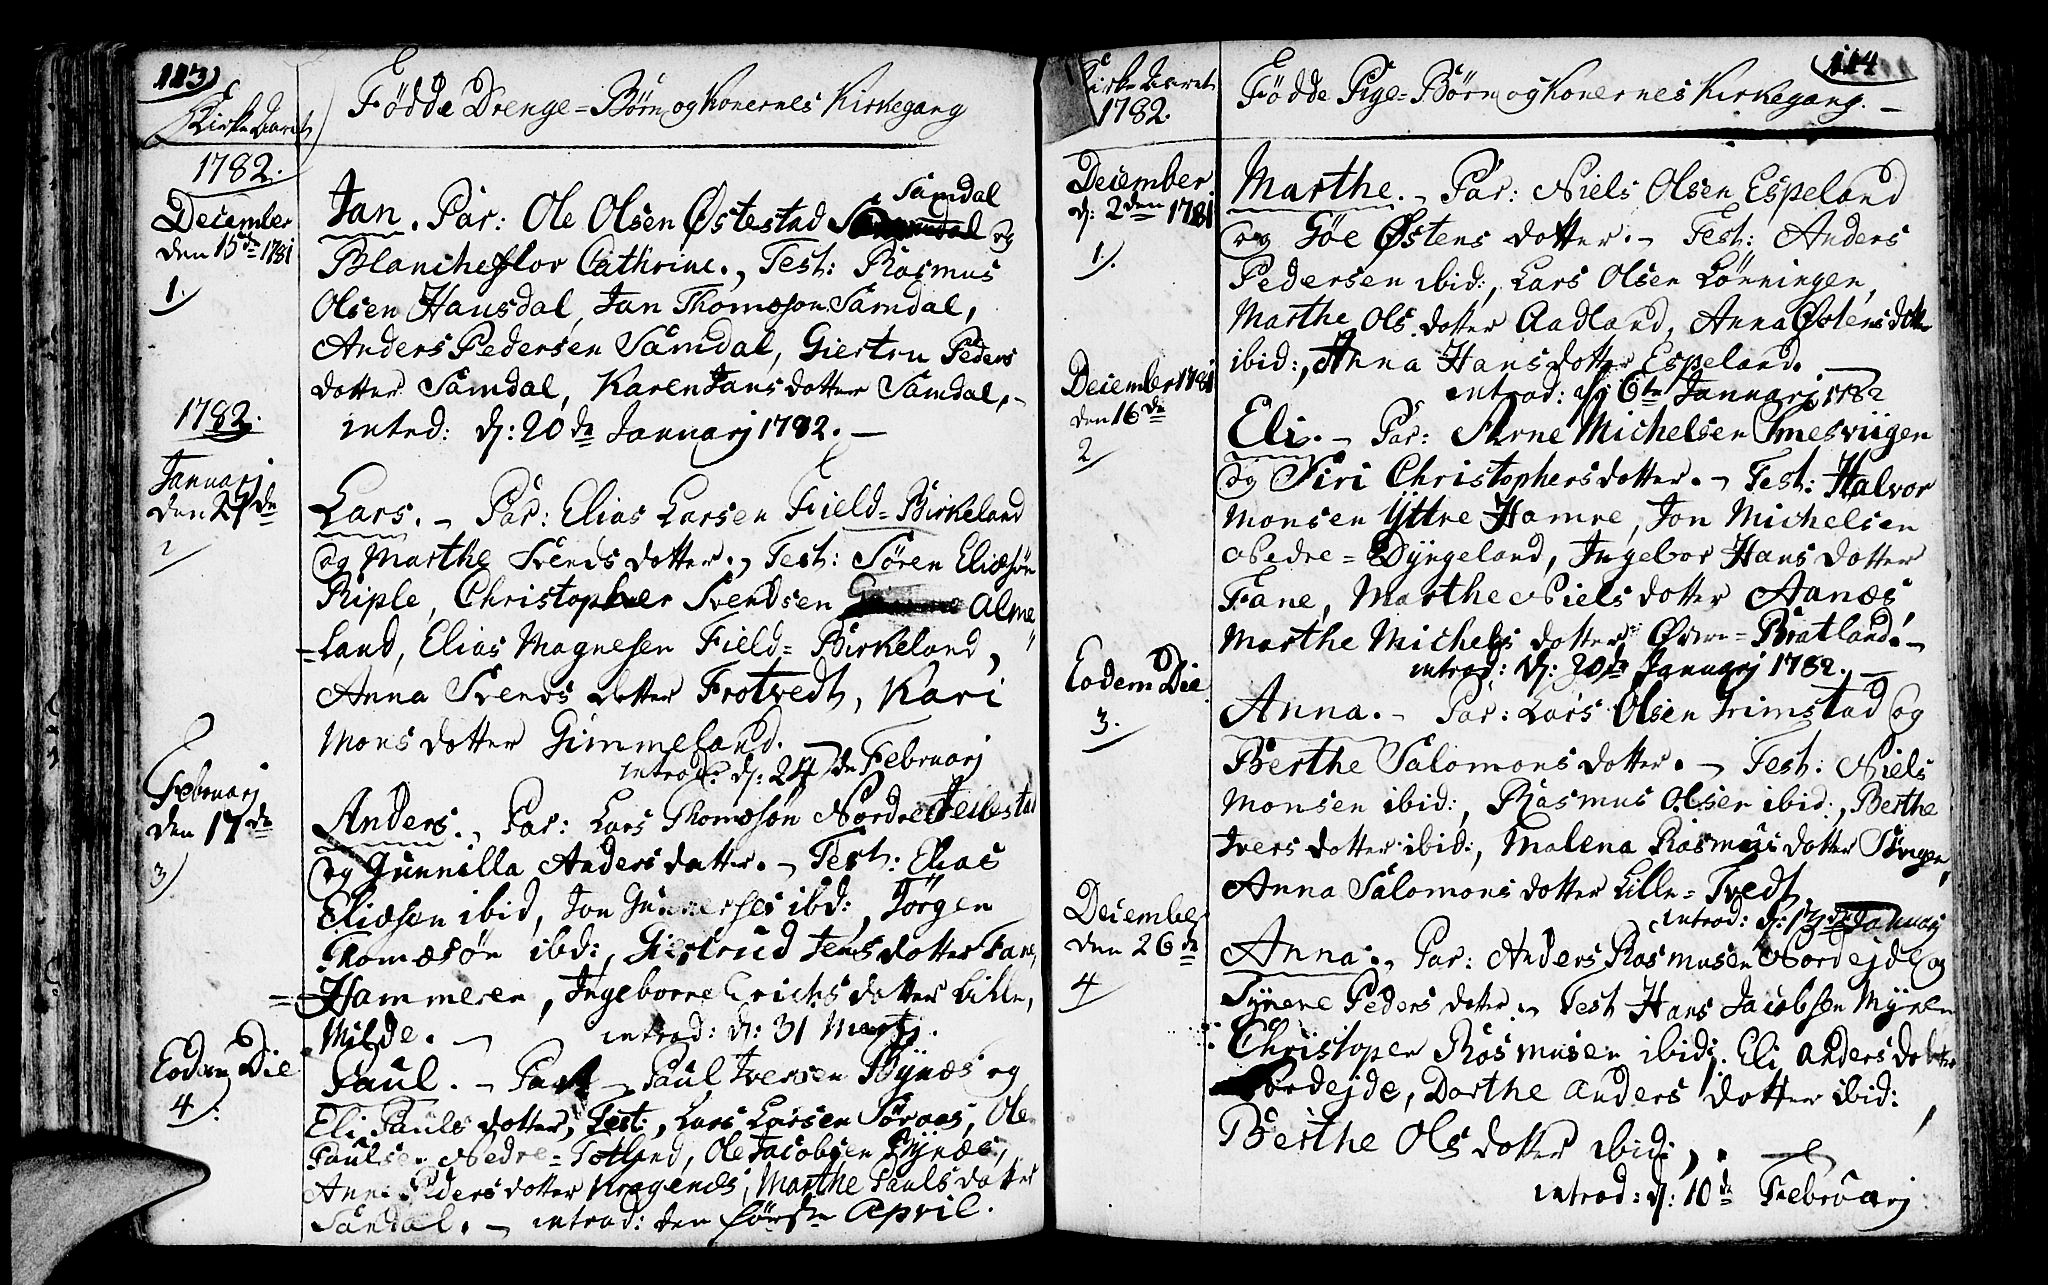 113)
Kirke Aaret
Födde Drenge = Börn og Konernes Kirkegang
1782.
December
den 15de 1781
1.
Jan. Par: Ole Olsen Østestad Samdal og
Blancheflor Cathrine., Test: Rasmus
Olsen Hausdal, Jan Thomæson Samdal,
Anders Pedersen Samdal, Giertru Peders
dotter Samdal, Karen Jans dotter Samdal, -
introd: d: 20de Januarj 1782. -
1782.
Januarj
den 27de
2
Lars. - Par: Elias Larsen Field = Birkeland
og Marthe Svends dotter. - Test: Sören Eliæsön
Riple, Christopher Svendsen Alme
= Land, Elias Magnesen Field = Birkeland,
Anna Svends dotter Frotvedt, Kari
Mons dotter Gimmeland.
introd: d: 24de Februarj
Februarj
den 17de
3)
Anders. - Par: Lars Thomæsön Nordre
og Gunnilla Anders datter. - Test: Elias
Eliæsen ibid, Jon ibd: Jörgen
Thomæsön ibd:, Giertrud Jens dotter Fane
= Hammeren, Ingeborre Erichs dotter Lille,
Milde. - introd: d: 31 Martj.
Eodem Die
4
Paul. - Par: - Paul Iversen Bÿnæs og
Eli Pauls dotter, Test:, Lars Larsen Söraas, Ole
Paulsen Nedre = Totland, Ole Jacobsen Bynæs,
Anna Peders dotter Kragenæs, Marthe Pauls dotter
Sandal. - introd: den förste April.
114
Kirke Aaret
1782.
Födde Pige = Börn og Konernes Kirkegang. -
December
d: 2den 1781
1.
Marthe. - Par: Niels Olsen Espeland
og Göe Østens dotter. - Test: Anders
Pedersen ibid:, Lars Olsen Lönningen,
Marthe Ols dotter Aadland, Anna Østens dotter
ibid:, Anna Hans dotter Espeland.
introd: d: 6te Januarj 1782
December 1781
den 16de
2
Eli. - Par: Arne Michelsen Smesviigen
og Siri Christophers dotter. - Test: Halvor
Monsen Yttre Hamre, Jon Michelsen
Nedre = Dyngeland, Ingebor Hans dotter
Fane, Marthe Niels dotter Aanæs,
Marthe Michels dotter Øvre = Bratland. -
introd: d: 20de Januarj 1782. -
Eodem Die
3.
Anna. - Par: Lars Olsen Grimstad og
Berthe Salomons dotter. - Test: Niels
Monsen ibid:, Rasmus Olsen ibid:, Berthe
Ivers dotter ibid:, Malena Rasmus dotter
Anna Salomons dotter Lille = Tvedt
introd: d: 13de Januarj
December
den 26de
4
Anna. - Par: Anders Rasmusen Nordejde og
Synene Peders dotter. - Test Hans Jacobsen Mÿren
Christopen Rasmusen ibid:. Eli Anders dotter
Nordejde, Dorthe Anders dotter ibid:
Berthe Ols dotter ibid:, .
introd: d: 10de Februarj